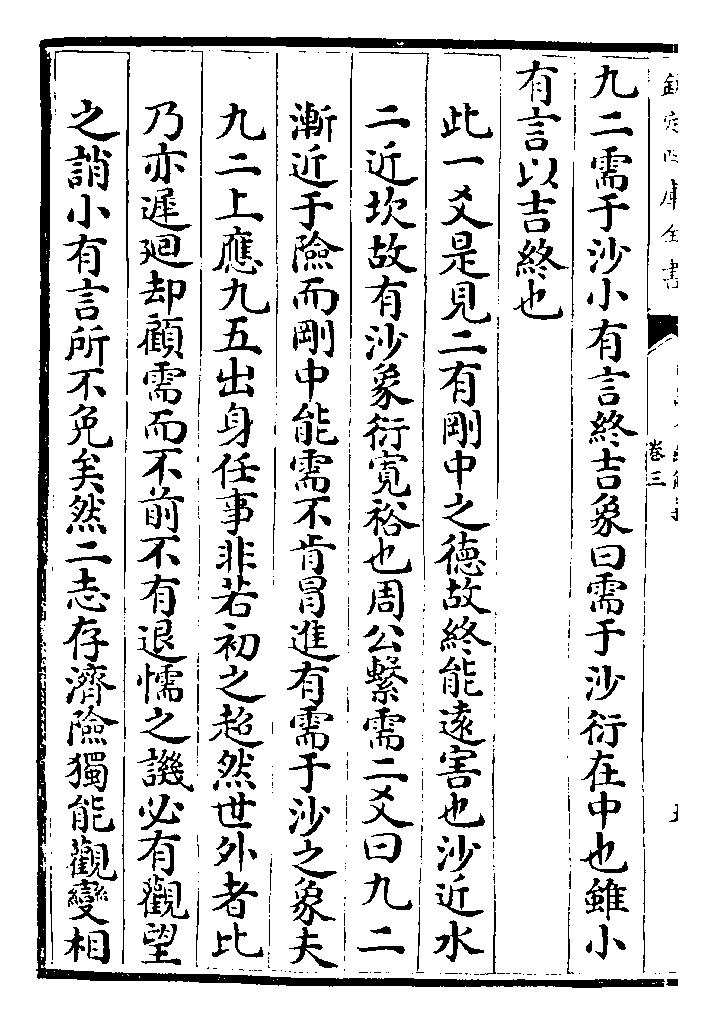 欽定四庫全書
卷三
九二需于沙小有言終吉象曰需于沙衍在中也雖小
有言以吉終也
此一爻是見二有剛中之德故終能遠害也沙近水
二近坎故有沙象衍寛裕也周公繫需二爻曰九二
漸近于險而剛中能需不肯冒進有需于沙之象夫
九二上應九五出身任事非若初之超然世外者比
乃亦遲廻却顧需而不前不有退懦之譏必有觀望
之誚小有言所不免矣然二志存濟險獨能觀變相